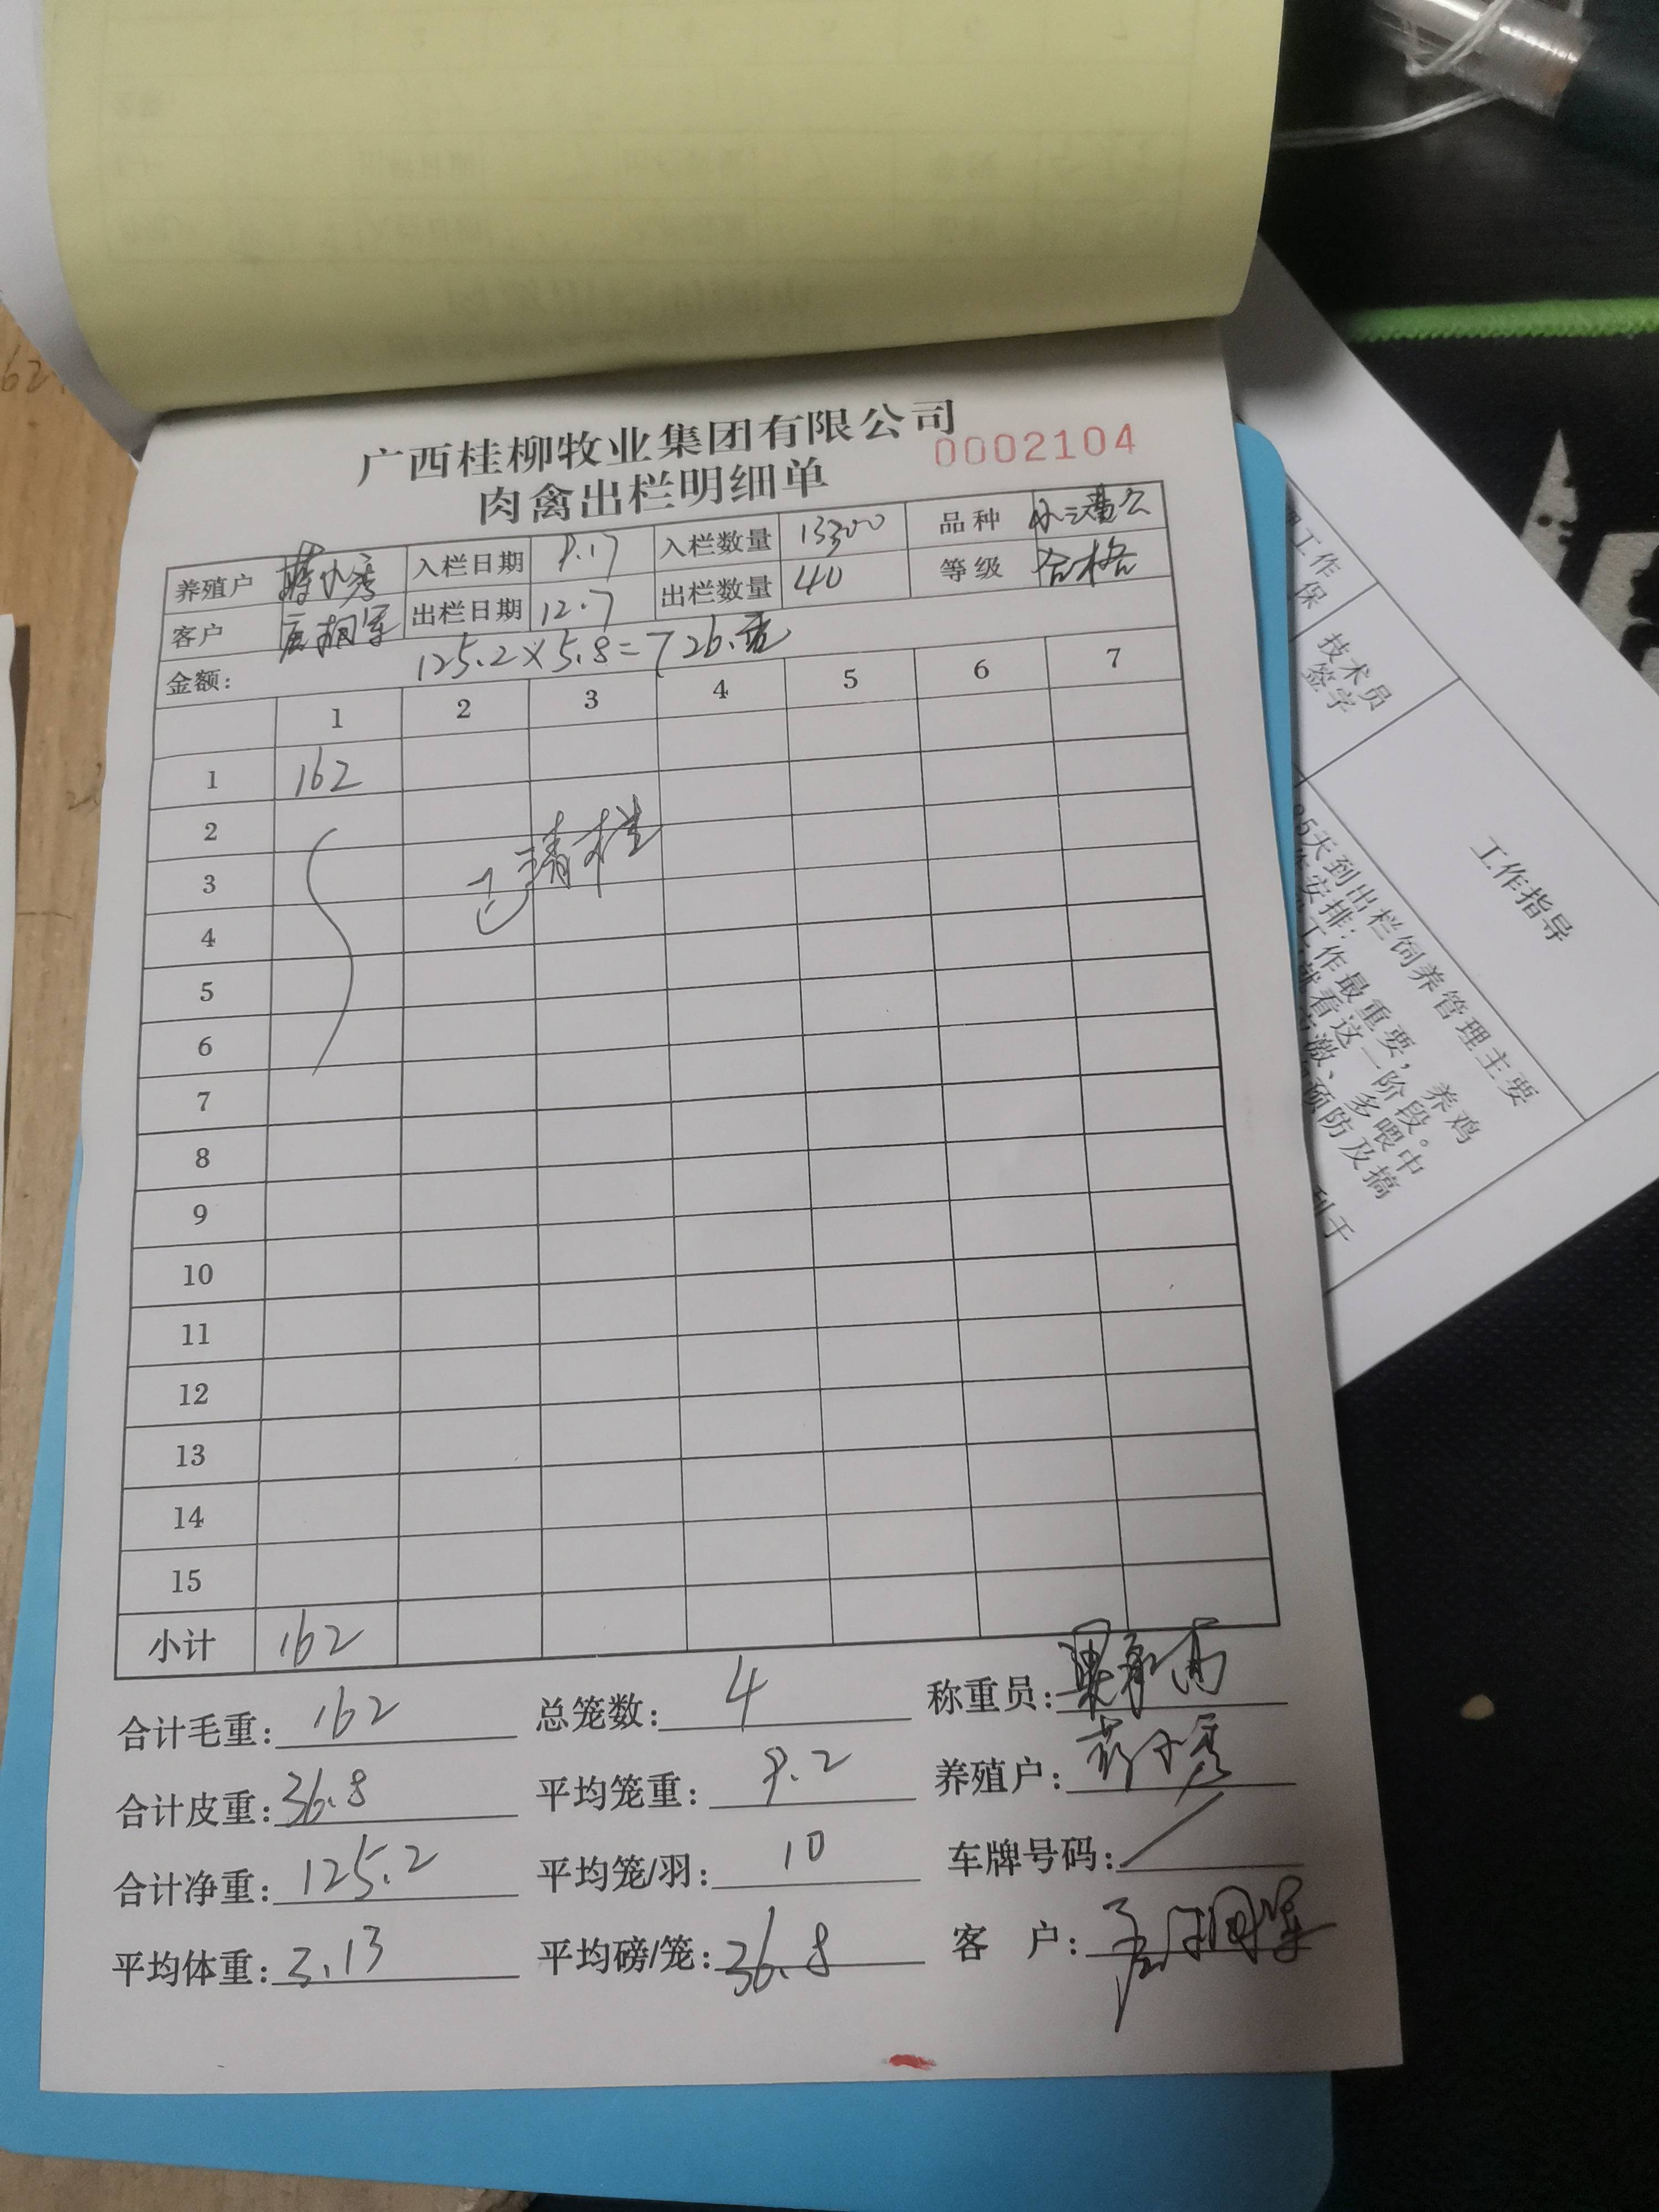 广西桂柳牧业集团有限公司
0002104
肉禽出栏明细单
养殖户 蒋小秀 入栏日期 9.17 入栏数量 13300 品种
客户 唐相军 出栏日期 12.7 出栏数量 40 等级 合格
金额: 125.2×5.8=726.元
1 2 3 4 5 6 7
1 162
2
3
4
5
6
7
8
9
10
11
12
13
14
15
小计 162
合计毛重: 162 总笼数: 4 称重员:
合计皮重: 36.8 平均笼重: 9.2 养殖户: 蒋小秀
合计净重: 125.2 平均笼/羽: 10 车牌号码: /
平均体重: 3.13 平均磅/笼: 36.8 客 户: 唐相军
工作
保
技术员
签字
工作指导
天到出栏饲养管理主要
安排:
工作最重要,养鸡
就看这一阶段。
激、多喂中
预防及搞
利于